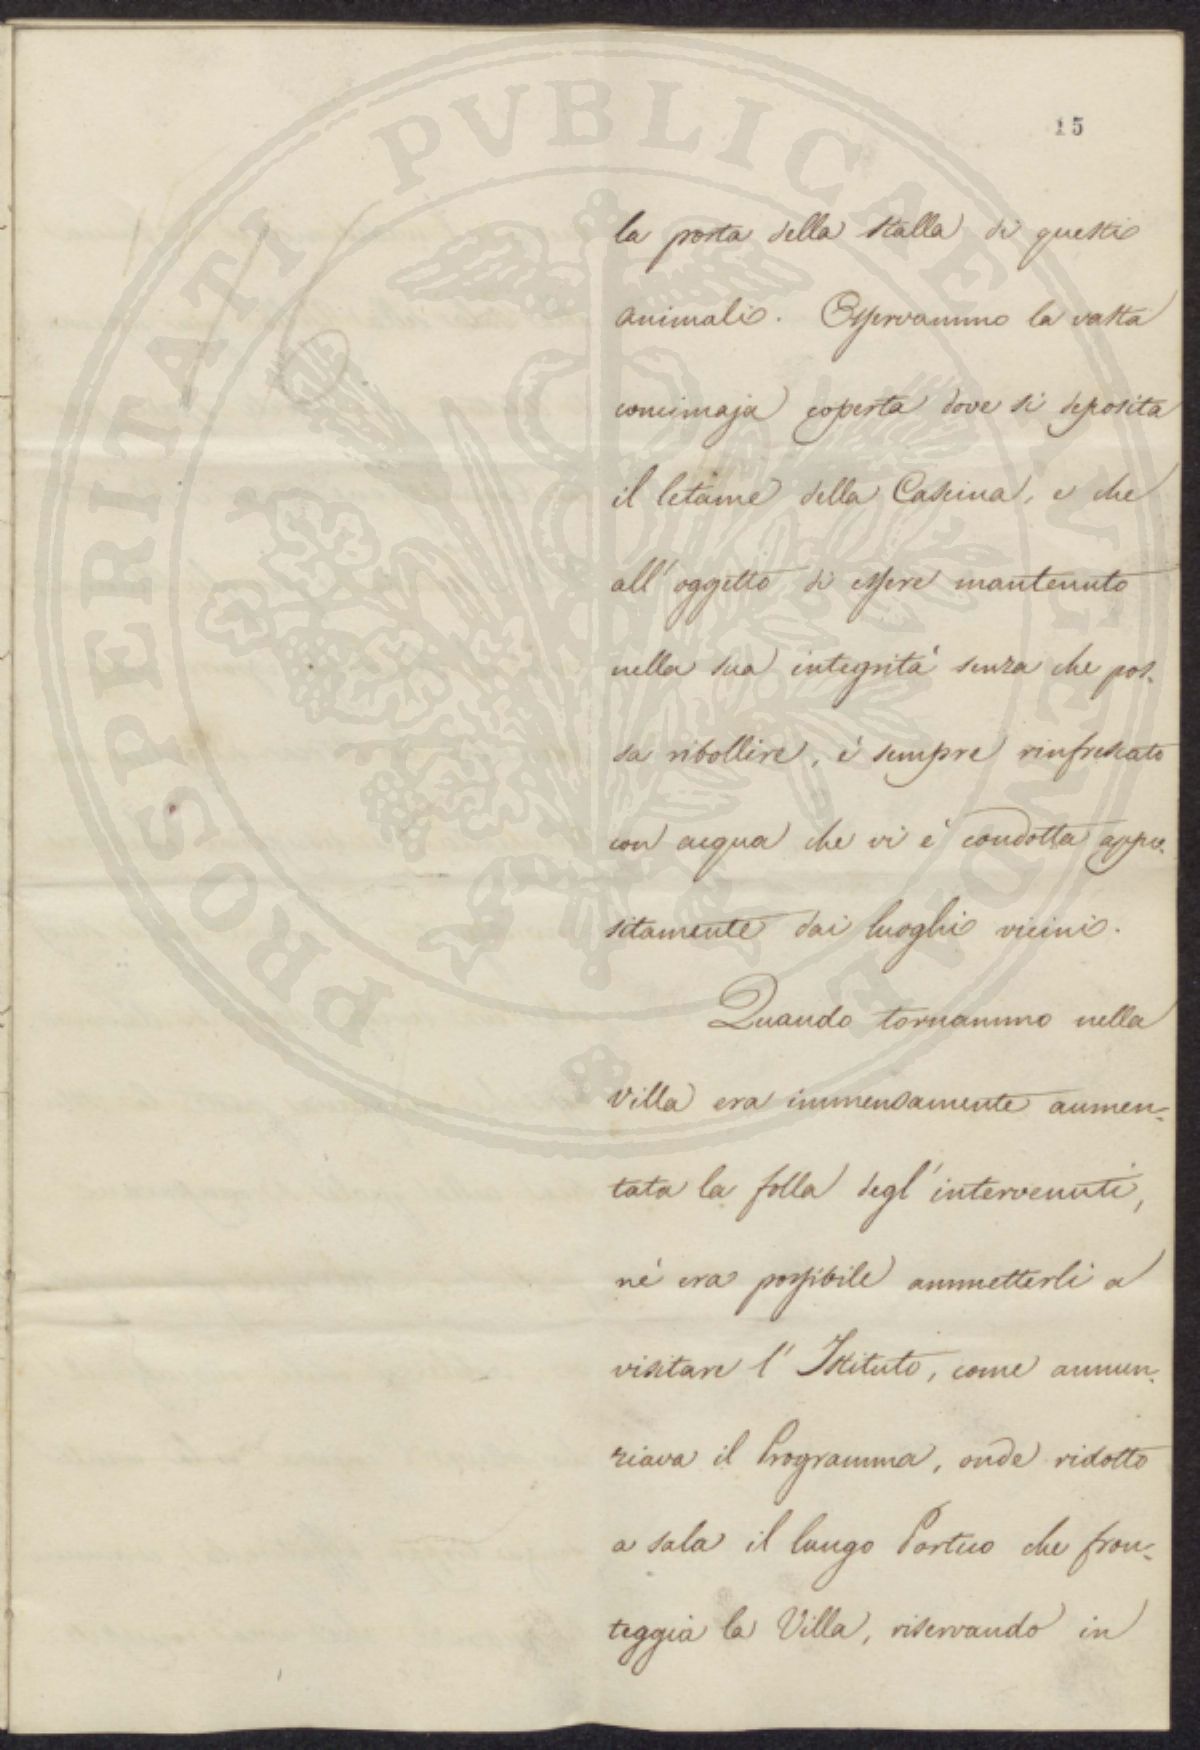 15
116
la porta della stalla di questi
animali. Osservammo la vasta
concimaja coperta dove si deposita
il letame della Cascina, e che
all'oggetto di essere mantenuto
nella sua integrità senza che pos-
sa ribollire, è sempre rinfrescato
con acqua che vi è condotta appo-
sitamente dai luoghi vicini.
Quando tornammo nella
Villa era immensamente aumen-
tata la folla degl'intervenuti,
nè era possibile ammetterli a
visitare l'Istituto, come annun-
ziava il Programma, onde ridotto
a sala il lungo Portico che fron-
teggia la Villa, riservando in
PROSPERITATI PVBLICAE AVGENDAE